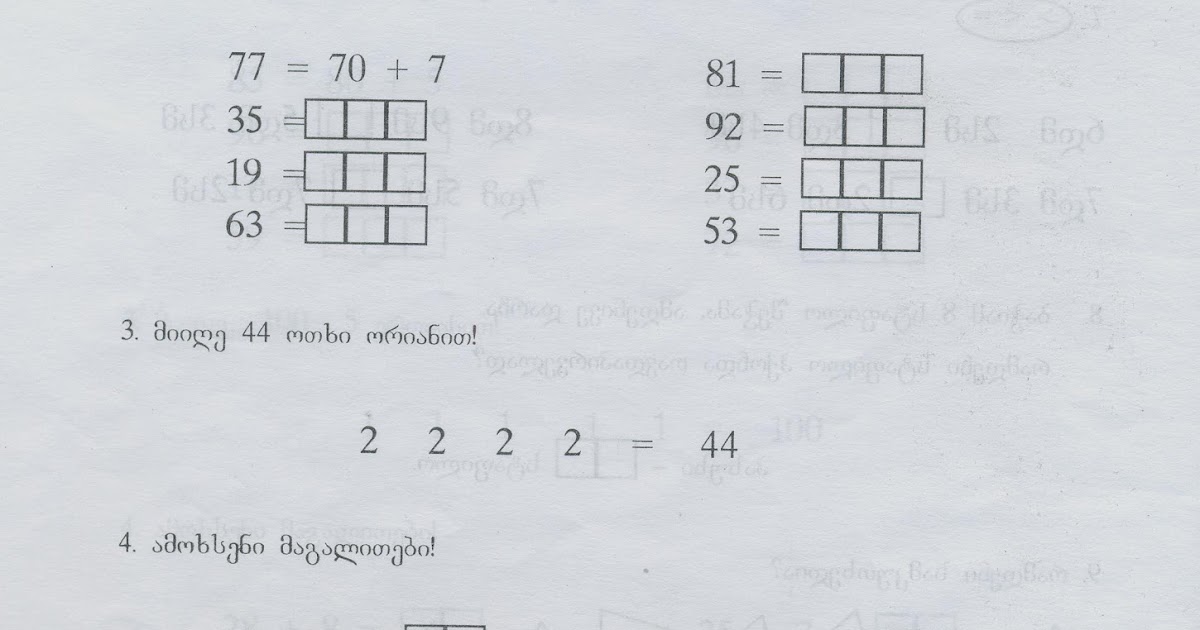 77 = 70 + 7
35 =
19 =
63 =
81 =
92 =
25 =
53 =
3. მიიღე 44 ოთხი ორიანით!
2 2 2 2 = 44
4. ამოხსენი მაგალითები!